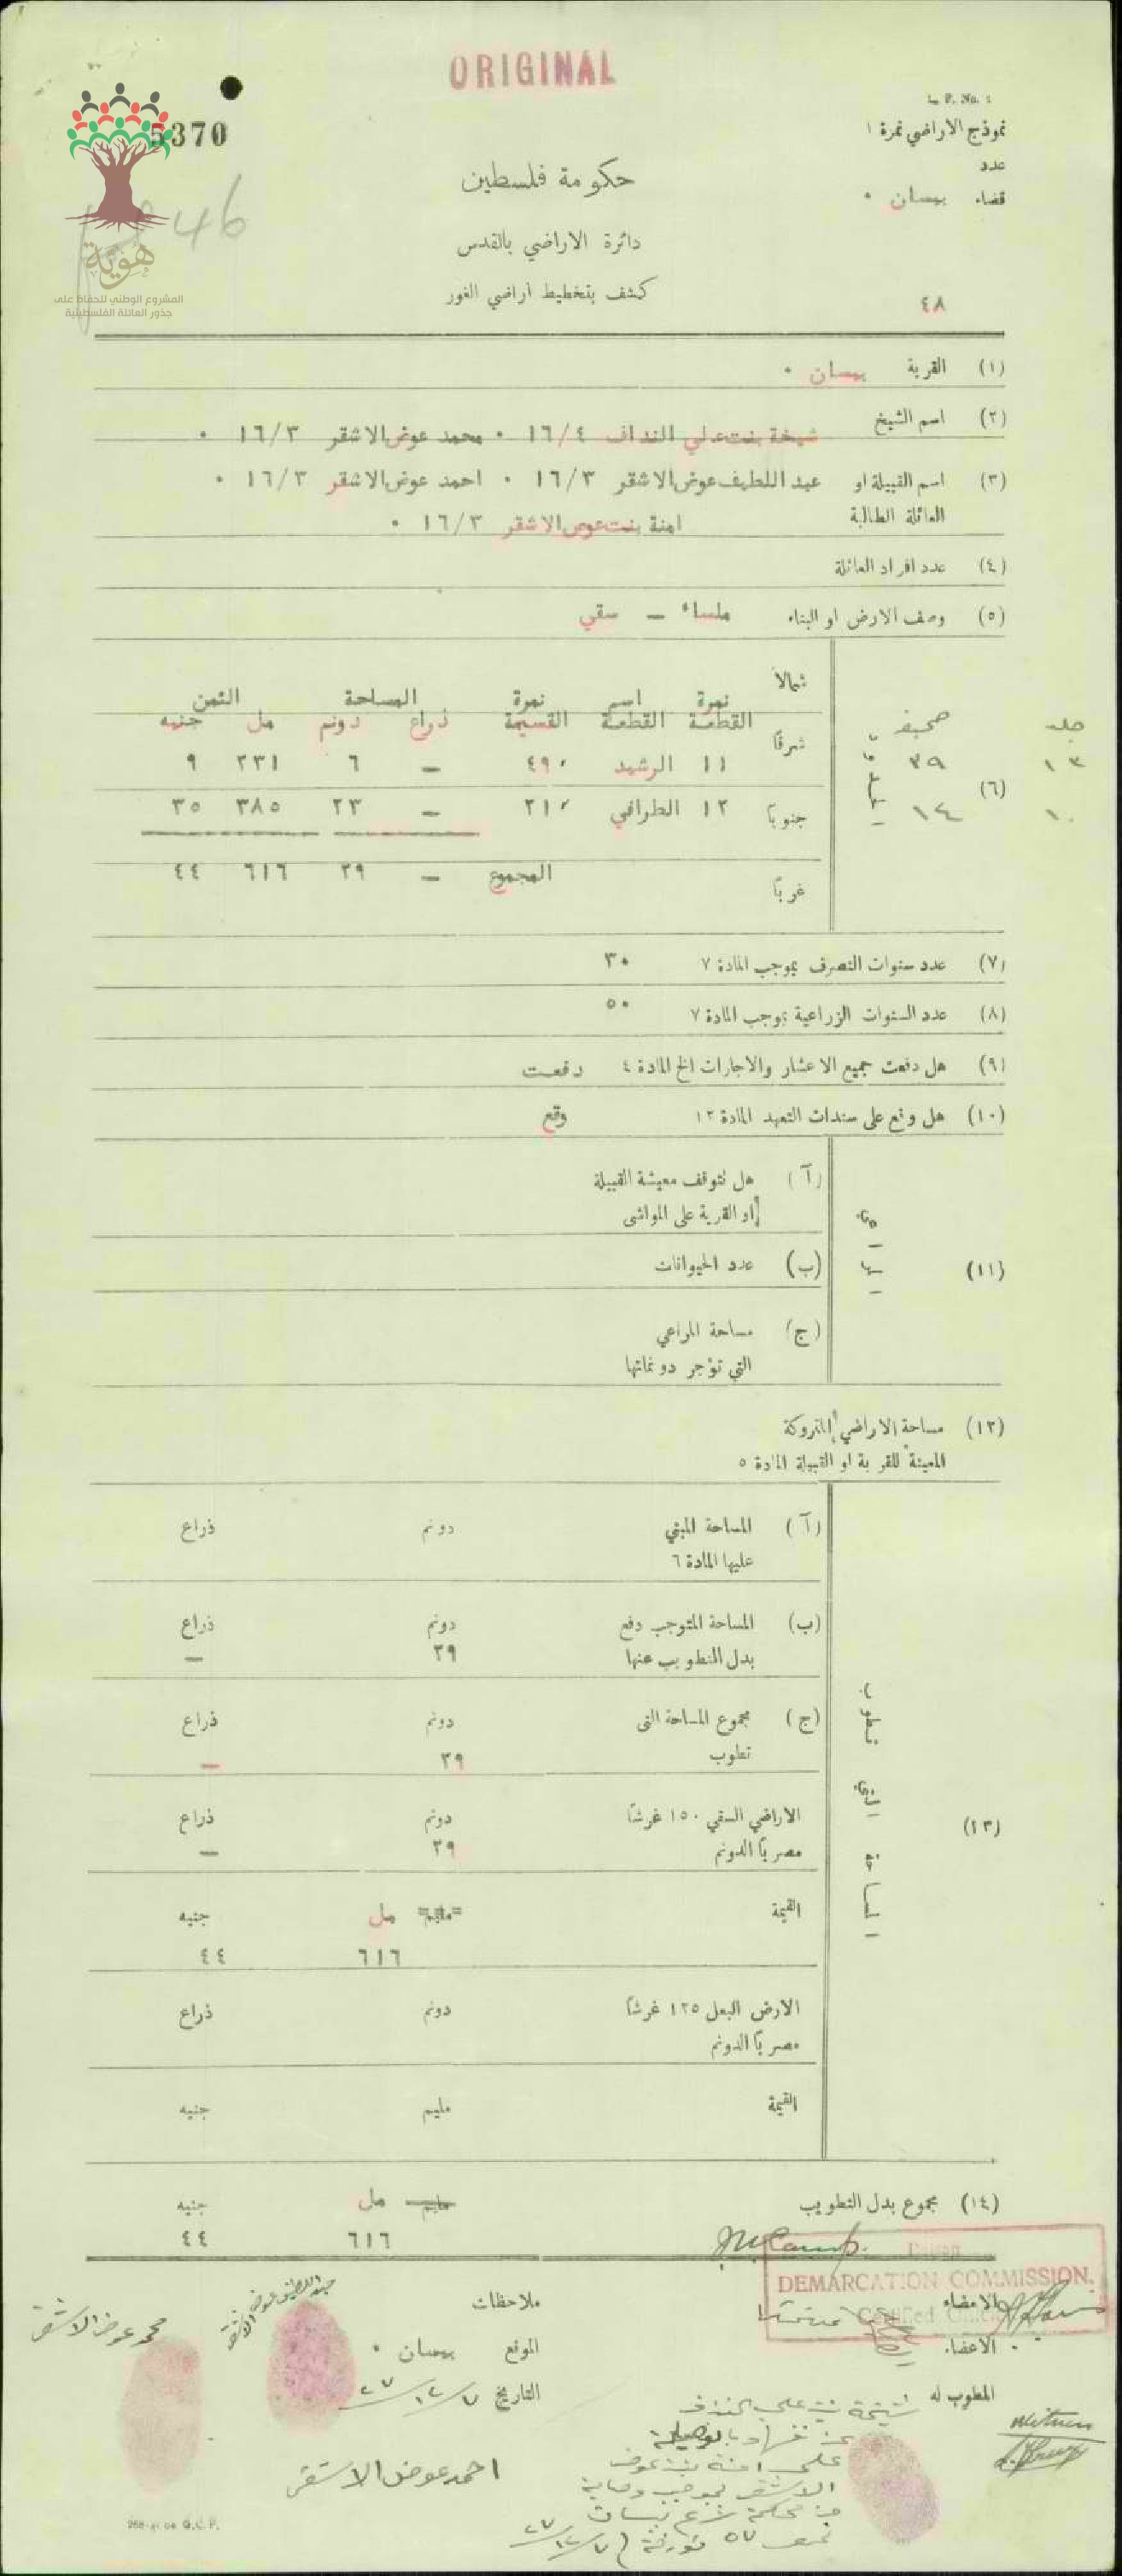 ORIGINAL
L. R. No. 1
نموذج الاراضي نمرة ١
5370
عدد
قضاء بيسان ٠
حكومة فلسطين
46
دائرة الاراضي بالقدس
هوية
المشروع الوطني للحفاظ على
جذور العائلة الفلسطينية
كشف بتخطيط اراضي الغور
٤٨
(١) القرية بيسان ٠
(٢) اسم الشيخ شيخة بنت علي النداف ١٦/٤ ٠ محمد عوض الاشقر ١٦/٣ ٠
(٣) اسم القبيلة او عبد اللطيف عوض الاشقر ١٦/٣ ٠ احمد عوض الاشقر ١٦/٣ ٠
العائلة الطالبة امنة بنت عوض الاشقر ١٦/٣ ٠
(٤) عدد افراد العائلة
(٥) وصف الارض او البناء ملساء — سقي
(٦) شمالاً نمرة اسم نمرة المساحة الثمن
جلد صحيفة شرقاً القطعة القطعة القسيمة ذراع دونم مل جنيه
١٣ ٣٩ ١١ الرشيد ٤٩ — ٦ ٢٣١ ٩
١٠ ١٤ جنوباً ١٢ الطرافي ٢١ — ٢٣ ٣٨٥ ٣٥
غرباً المجموع — ٢٩ ٦١٦ ٤٤
(٧) عدد سنوات التصرف بموجب المادة ٧ ٣٠
(٨) عدد السنوات الزراعية بموجب المادة ٧ ٥٠
(٩) هل دفعت جميع الاعشار والاجارات الخ المادة ٤ دفعت
(١٠) هل وقع على سندات التعهد المادة ١٢ وقع
(١١) (آ) هل تتوقف معيشة القبيلة
او القرية على المواشي
(ب) عدد الحيوانات
(ج) مساحة المراعي
التي تؤجر دونماتها
(١٢) مساحة الاراضي المتروكة
المعينة للقرية او القبيلة المادة ٥
(١٣) المساحة التي تطوب
(آ) المساحة المبني دونم ذراع
عليها المادة ٦
(ب) المساحة المتوجب دفع دونم ذراع
بدل التطويب عنها ٢٩ —
(ج) مجموع المساحة التي دونم ذراع
تطوب ٢٩ —
الاراضي السقي ١٥٠ غرشاً دونم ذراع
مصرياً الدونم ٢٩ —
القيمة مليم مل جنيه
٦١٦ ٤٤
الارض البعل ١٢٥ غرشاً دونم ذراع
مصرياً الدونم
القيمة مليم جنيه
(١٤) مجموع بدل التطويب مليم مل جنيه
٦١٦ ٤٤
DEMARCATION COMMISSION.
الامضاء
ملاحظات
عبد اللطيف عوض الاشقر
محمد عوض الاشقر
الاعضاء
الموقع بيسان ٠
التاريخ ٢٧/١٢/٧
المطوب له شيخة بنت علي النداف
عن نفسها وبالوصاية
على امنة بنت عوض
الاشقر بموجب وصاية
من محكمة شرع بيسان
نمرة ٥٧ مؤرخة ٢٧/١٢/٧
Witness
احمد عوض الاشقر